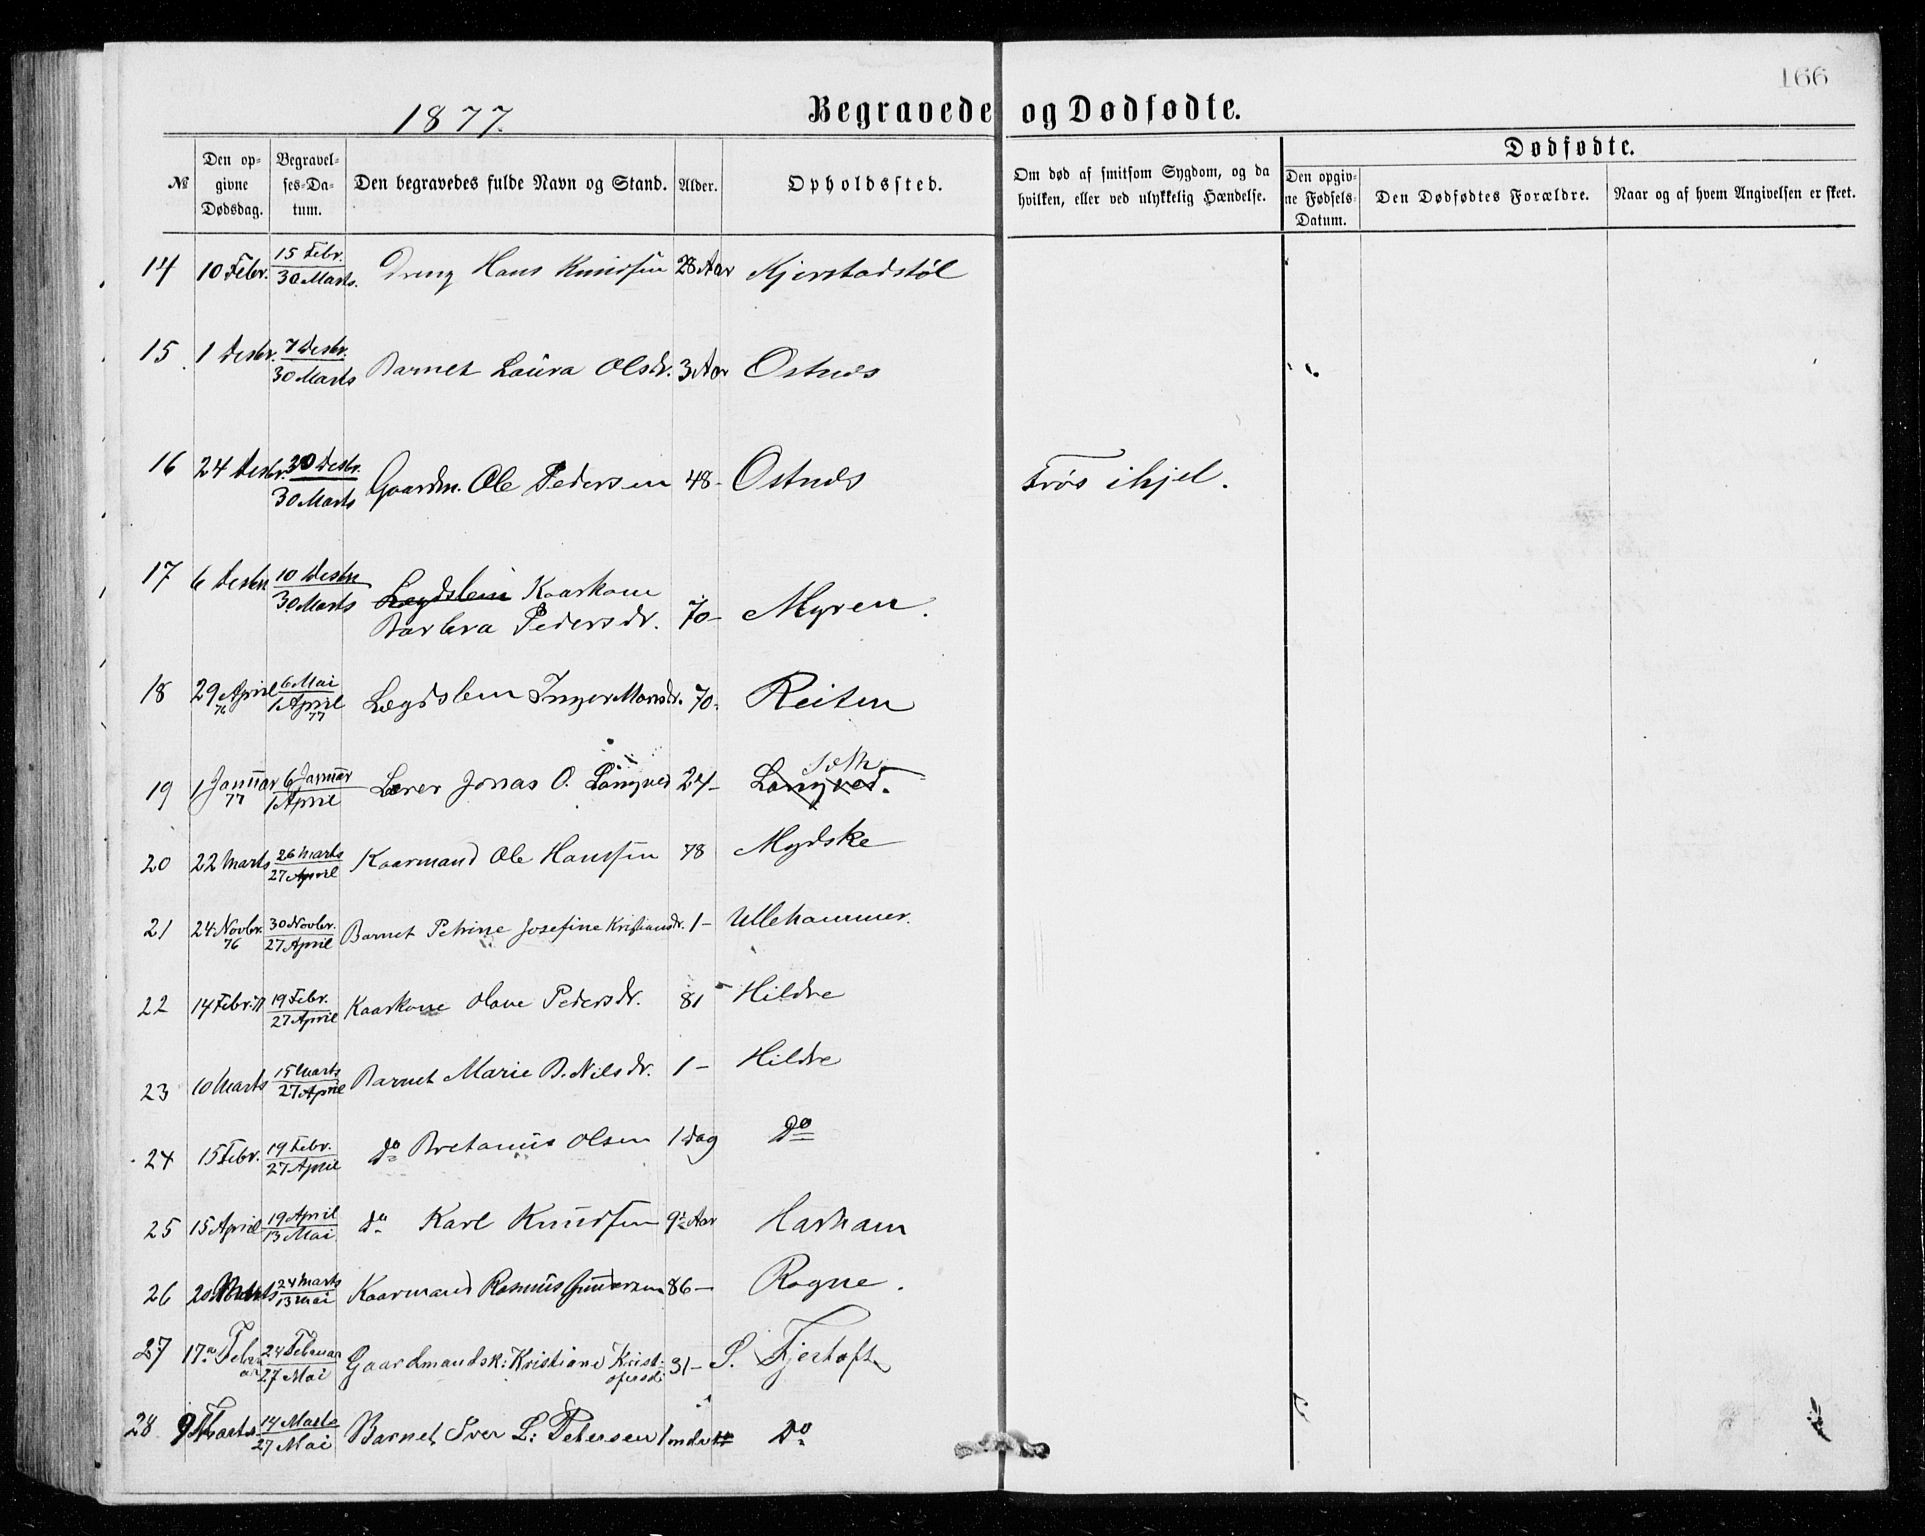 166
1877.
Begravede og Dødfødte.
№
Den opgivne Dødsdag.
Begravelses-Datum.
Den begravedes fulde Navn og Stand.
Alder.
Opholdssted.
Om død af smitsom Sygdom, og da hvilken, eller ved ulykkelig Hændelse.
Dødfødte.
Den opgivne Fødsels-Datum.
Den Dødfødtes Forældre.
Naar og af hvem Angivelsen er skeet.
14 10 Febr. 15 Febr. 30 Marts. Dreng Hans Knudsen 28 Aar Kjerstadstøl
15 1 Desbr. 7 Desbr. 30 Marts Barnet Laura Olsdr. 3 Aar Ostnes
16 24 Desbr. 30 Desbr. 30 Marts Gaardm. Ole Pedersen 48- Ostnes Frøs ihjel.
17 6 Desbr 10 Desbr 30 Marts Lægdslem Kaarkone
Barbra Pedersdr. 70- Myren.
18 29 April 76 6 Mai 1 April 77 Lægdslem Inger Monsdr. 70- Reiten
19 1 Januar 77 6 Januar 1 April Lærer Jonas O. Longved 24- Longved.
20 22 Marts 26 Marts 27 April Kaarmand Ole Hanssen 78 Mydske
21 24 Novbr. 76 30 Novbr. 27 April Barnet Petrine Josefine Kristiansdr. 1- Ullehammer.
22 14 Febr. 77 19 Febr. 27 April Kaarkone Olave Pedersdr. 81 - Hildre
23 10 Marts 15 Marts 27 April Barnet Marie B. Nilsdr. 1 - Hildre
24 15 Febr. 19 Febr. 27 April do Bretanus Olsen 1 Dag Do
25 15 April 19 April 13 Mai do Karl Knudsen 9½ Aar Harham
26 20 Marts 24 Marts 13 Mai Kaarmand Rasmus Gundersen 86 - Rogne.
27 17de Februar 24 Februar 27 Mai Gaardmandsk: Kristiane Kristofersdr 31- S. Fjertoft
28 9 Marts 14 Marts 27 Mai Barnet Iver L: Petersen 1 mdr Do